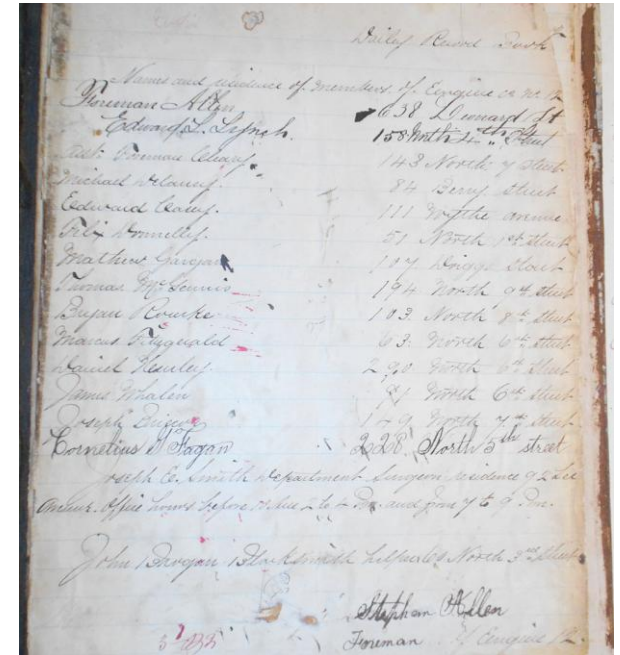 Daily Record Book
Names and residence of members of Engine co no 12
Foreman Allen 638 Leonard St
Edward L. Lynch. 158 North 4th Street
Asst. Foreman Cleary. 143 North 7 Street
Michael Delaney. 84 Berry Street
Edward Casey. 111 Wythe avenue
Felix Donnelly. 51 North 1st Street
Mathew Gargan 107 Driggs Street
Thomas McGinnis 194 North 9th Street
Bryan Rourke 103 North 8th Street
Marcus Fitzgerald 63 North 6th Street
Daniel 290 North 6th Street
James Whalen North 6th Street
Joseph North 7th Street
Cornelius J Fagan 228 North 5th street
Joseph E. Smith Department Surgeon residence 92 Lee
Avenue. Office hours before 2 to and from 7 to 9 Pm.
John Blacksmith helper North 3rd Street
Stephen Allen
Foreman Engine 12